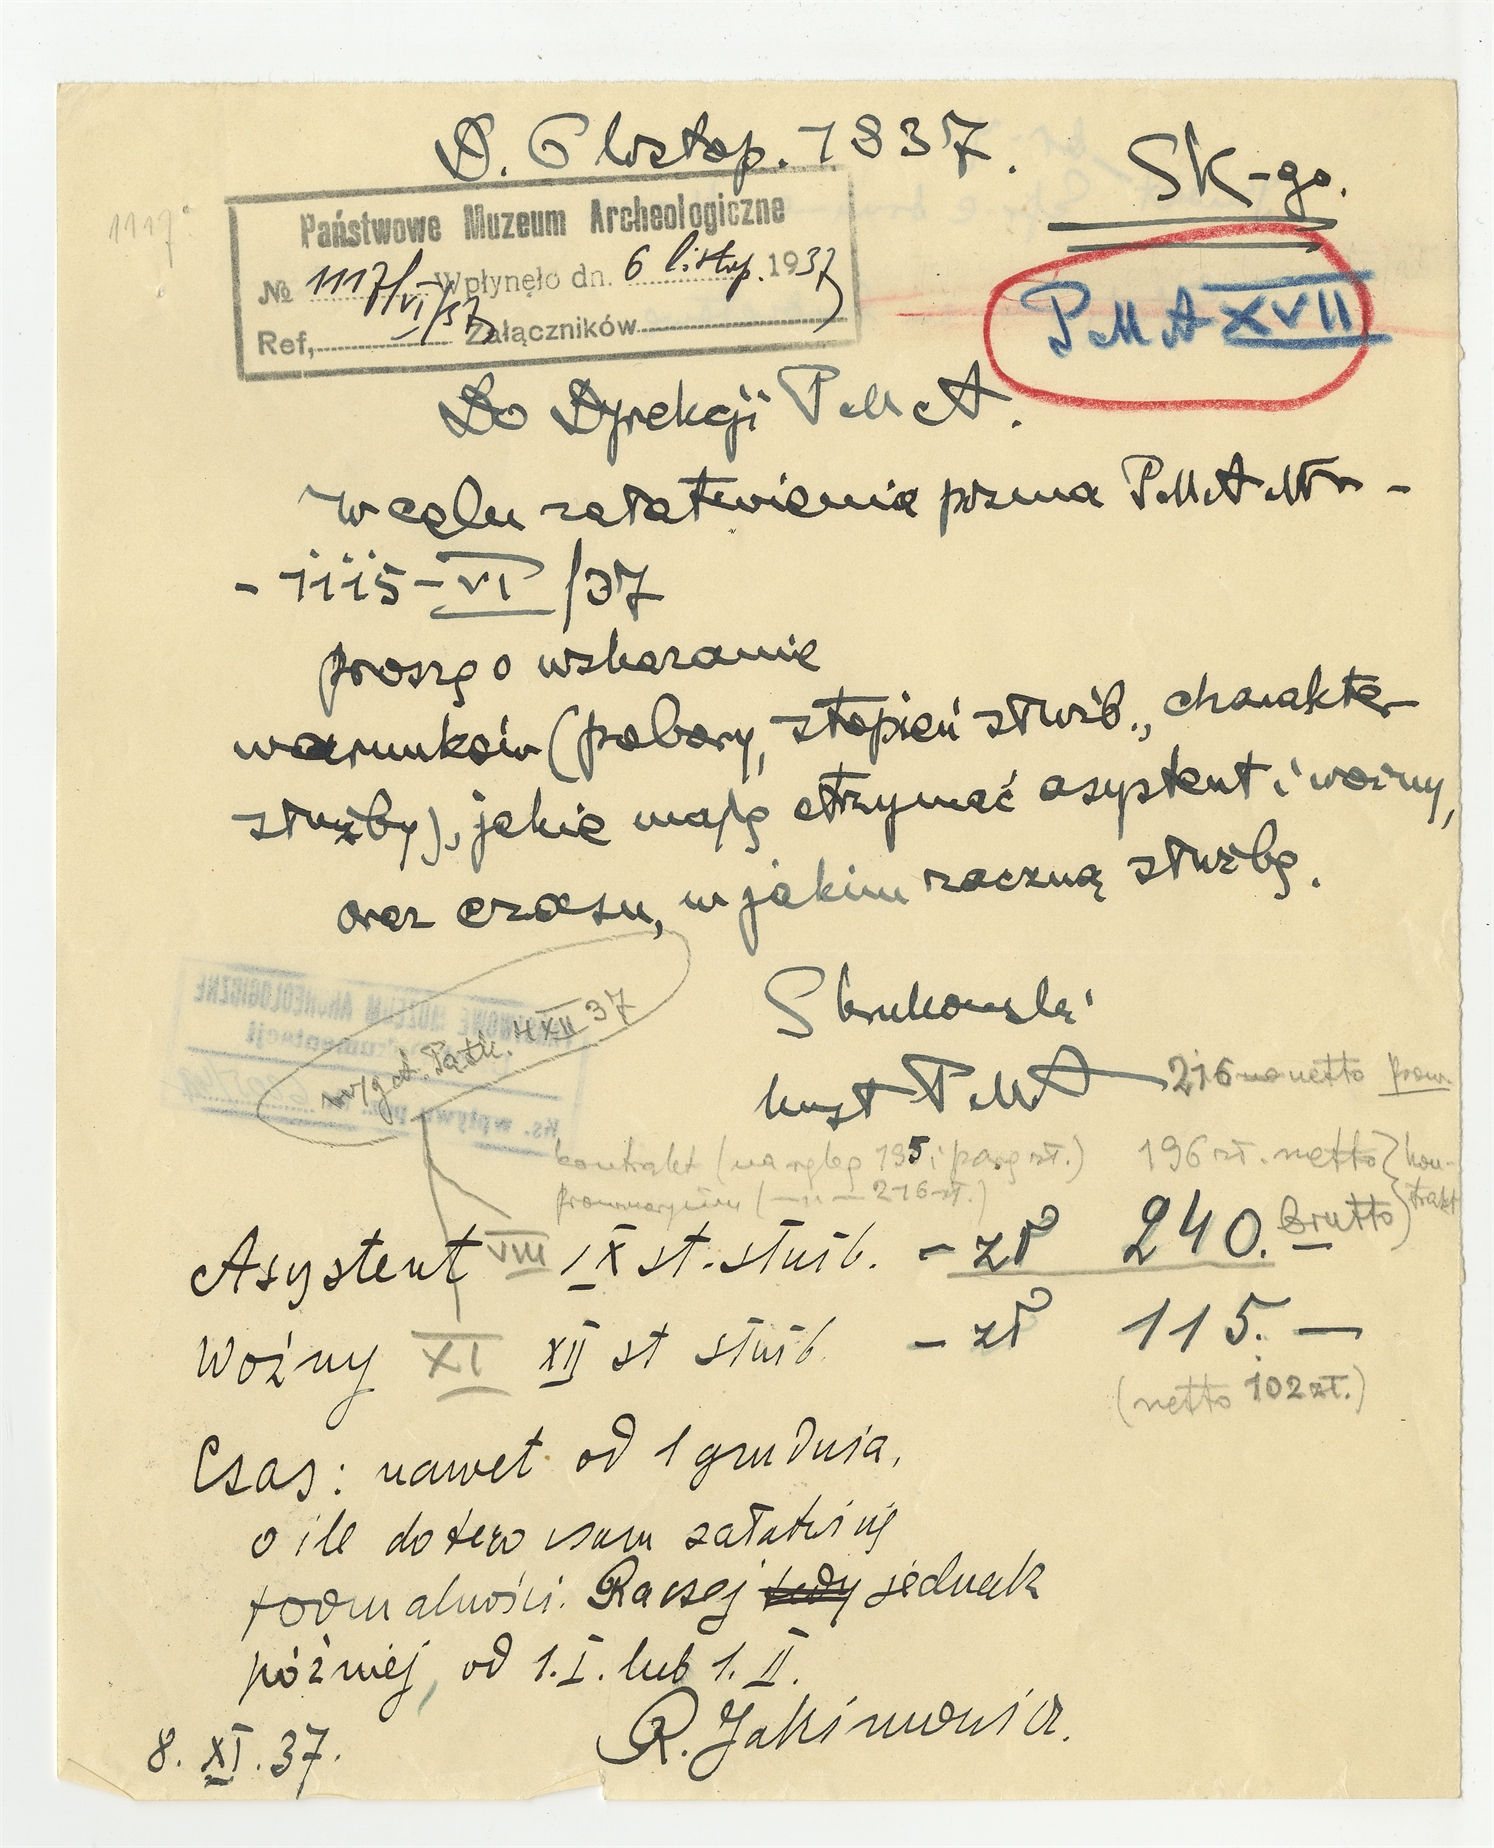 D. 6 listop. 1937.
SK-go.
1117
Państwowe Muzeum Archeologiczne
№ 1117/VI/37 Wpłynęło dn. 6 listop. 1937
Ref, Załączników
PMA XVII
Do Dyrekcji PMA.
W celu załatwienia pisma PMA Nr -
- 1115-VI/37
proszę o wskazanie
warunków (pobory, stopień służb., charakter
służby), jakie mają otrzymać asystent i woźny,
oraz czasu, w jakim zaczną służbę.
PAŃSTWOWE MUZEUM ARCHEOLOGICZNE
Dokumentacji
Ks. wpływu
4 XII 37
Skrukowski
kust PMA
216 netto prow.
kontrakt (na rękę 195 i parę zł.) 196 zł. netto } kon-
prowizorium (— „ — 216 zł.) trakt
Asystent VIII IX st. służb. - zł 240.- brutto
Woźny XI XII st służb. - zł 115.-
(netto 102 zł.)
Czas: nawet od 1 grudnia,
o ile do tego czasu załatwi się
formalności. Raczej tedy jednak
później, od 1.I. lub 1.II.
8. XI. 37. R. Jakimowicz.